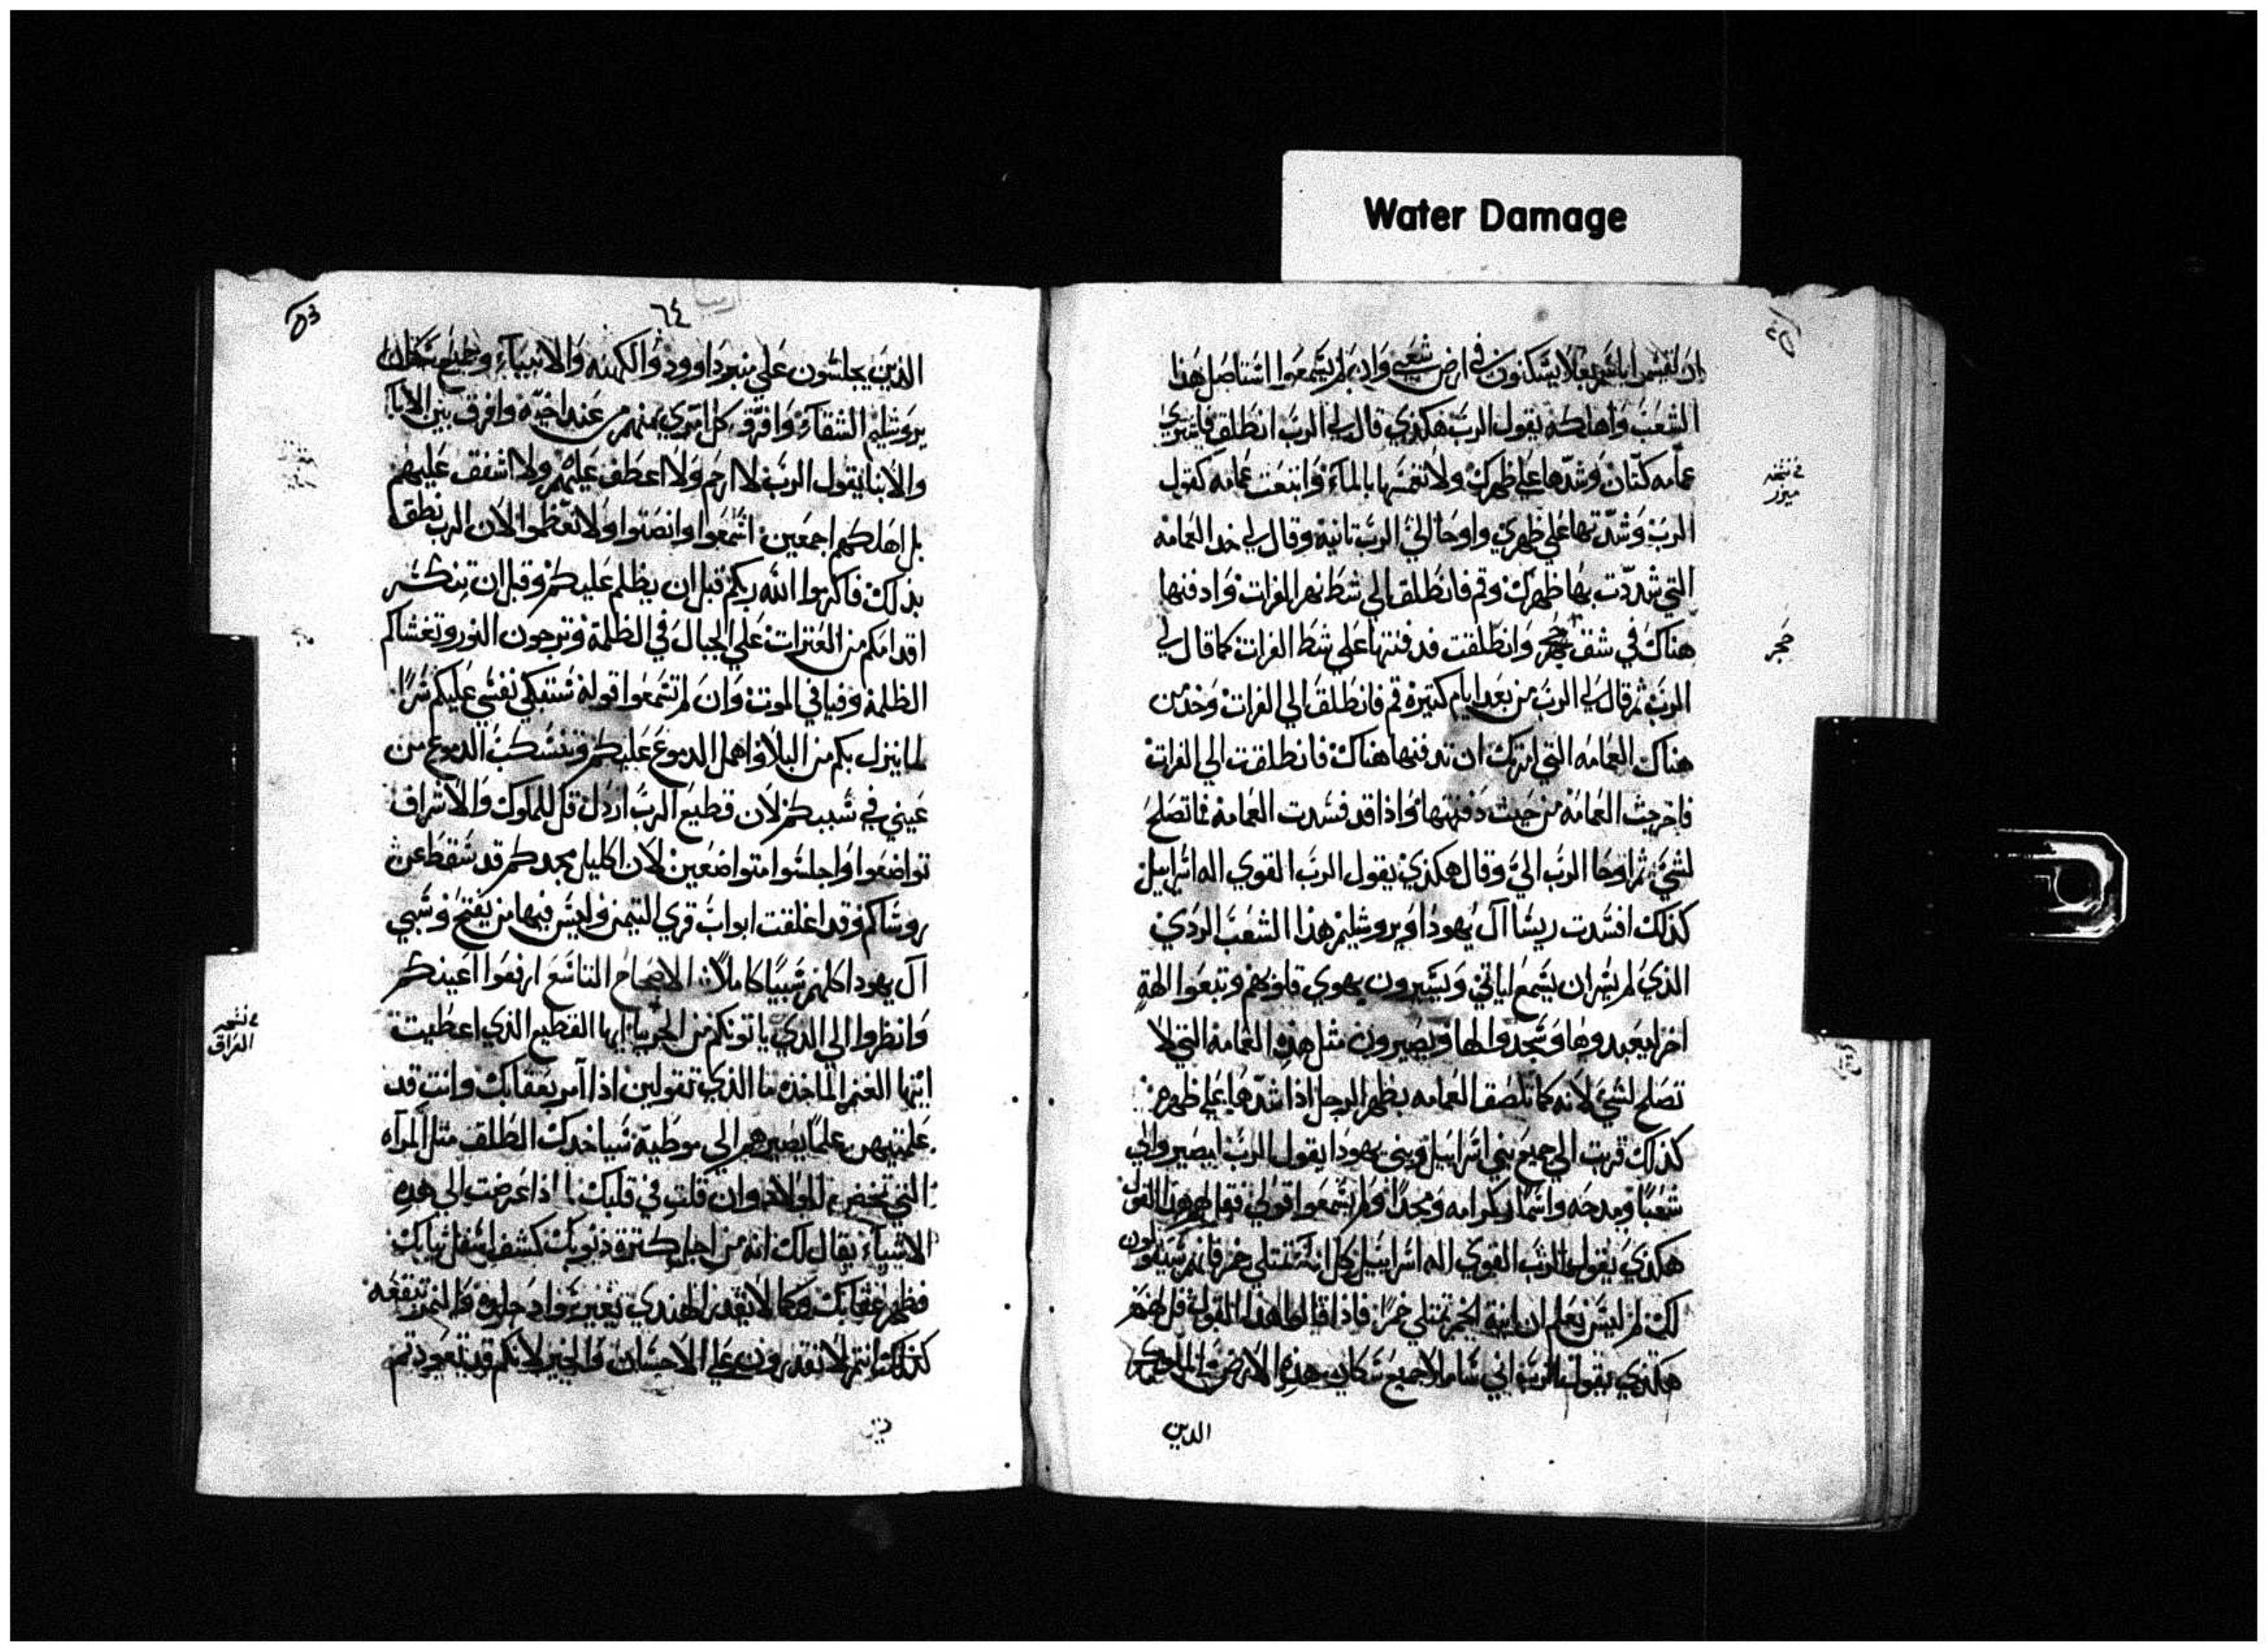 Water Damage
ان يقسموا باسمي بعلا يسكنون في ارض شعبي وان لم يسمعوا استاصل هذا
الشعب واهلكه يقول الرب هكذي قال لي الرب انطلق فاشتري
عمامه كتان وشدها علي ظهرك ولا تغمسها بالماء وابتعت عمامه كقول
الرب وشدتها علي ظهري واوحا الي الرب تانية وقال لي خد العمامه
التي شددت بها ظهرك وقم فانطلق الي شط نهر الفرات وادفنها
هناك في شقف حجر وانطلقت فدفنتها علي شط الفرات كما قال لي
الرب ثم قال لي الرب من بعد ايام كتيرة قم فانطلق الي الفرات وخد من
هناك العمامه التي امرتك ان تدفنها هناك فانطلقت الي الفرات
فاخرجت العمامة من حيث دفنتها واذا قد فسدت العمامه فما تصلح
لشي ثم اوحا الرب الي وقال هكذي يقول الرب القوي اله اسراييل
كذلك افسدت ريسا ال يهودا ويروشليم هذا الشعب الردي
الذي لم يسر ان يسمع اياتي ويسيرون بهوي قلوبهم وتبعوا الهة
اخر ليعبدوها وسجدوا لها ويصيرون مثل هذه العمامة التي لا
تصلح لشي لانه كما تلصق العمامه بظهر الرجل اذا شدها علي ظهره
كذلك قربت الي جميع بني اسراييل وبني يهودا يقول الرب ليصيروا لي
شعبا ومدحه واسما وكرامه ومجدا ولم يسمعوا قولي فقل لهم هذا القول
هكذي يقول الرب القوي اله اسراييل كل انية تمتلي خمر فانهم سيقولون
لك لم ليس نعلم ان انية الخمر تمتلي خمرا فاذا قالوا هذا القول قل لهم
هكذي يقول الرب اني ساملا جميع سكان هذه الارض والملوك
الدين
في نسخه
ميزر
حجر
٦٤
53
الذين يجلسون علي منبر داوود والكهنه والانبياء وجميع سكان
يروشليم الشقاء وافرق كل امري منهم من عند اخيه وافرق بين الابا
والابنا يقول الرب لا ارحم ولا اعطف عليهم ولا اشفق عليهم
بل اهلكهم اجمعين اسمعوا وانصتوا ولا تعظموا لان الرب نطق
بذلك فاكرموا الله ربكم قبل ان يظلم عليكم وقبل ان تنكسر
اقدامكم من العترات علي الجبال في الظلمة وترجون النور وتغشاكم
الظلمة وفيافي الموت وان لم تسمعوا قوله ستبكي نفسي عليكم شرا
لما ينزل بكم من البلا واهمل الدموع عليكم وتنسكب الدموع من
عيني في سببكم لان قطيع الرب اردل قل للملوك والاشراف
تواضعوا واجلسوا متواضعين لان اكليل مجدكم قد سقط عن
روساكم وقد اغلقت ابواب قري التيمن وليس فيها من يفتح وسبي
آل يهودا كلهم سبيا كاملا الاصحاح التاسع ارفعوا اعينكم
وانظروا الي الذي ياتونكم من الجربيا ايها القطيع الذي اعطيت
ايتها الغنم الماخذه ما الذي تقولين اذا امر بعقابك وانت قد
علمتيهم علما يصيرهم الي موطيه سياخدك الطلق مثل المرآه
التي تخضر للولاد وان قلت في قلبك لماذا عرضت الي هده
الاشياء يقال لك انه من اجل كترة ذنوبك كشف اسفل ثيابك
فظهر عقابك وكما لا يقدر الهندي يغير سواد جلوده والنمر تنقعه
كذلك انتم لا تقدرون علي الاحسان والخير لانكم قد تعودتم
في نسخه
العراق